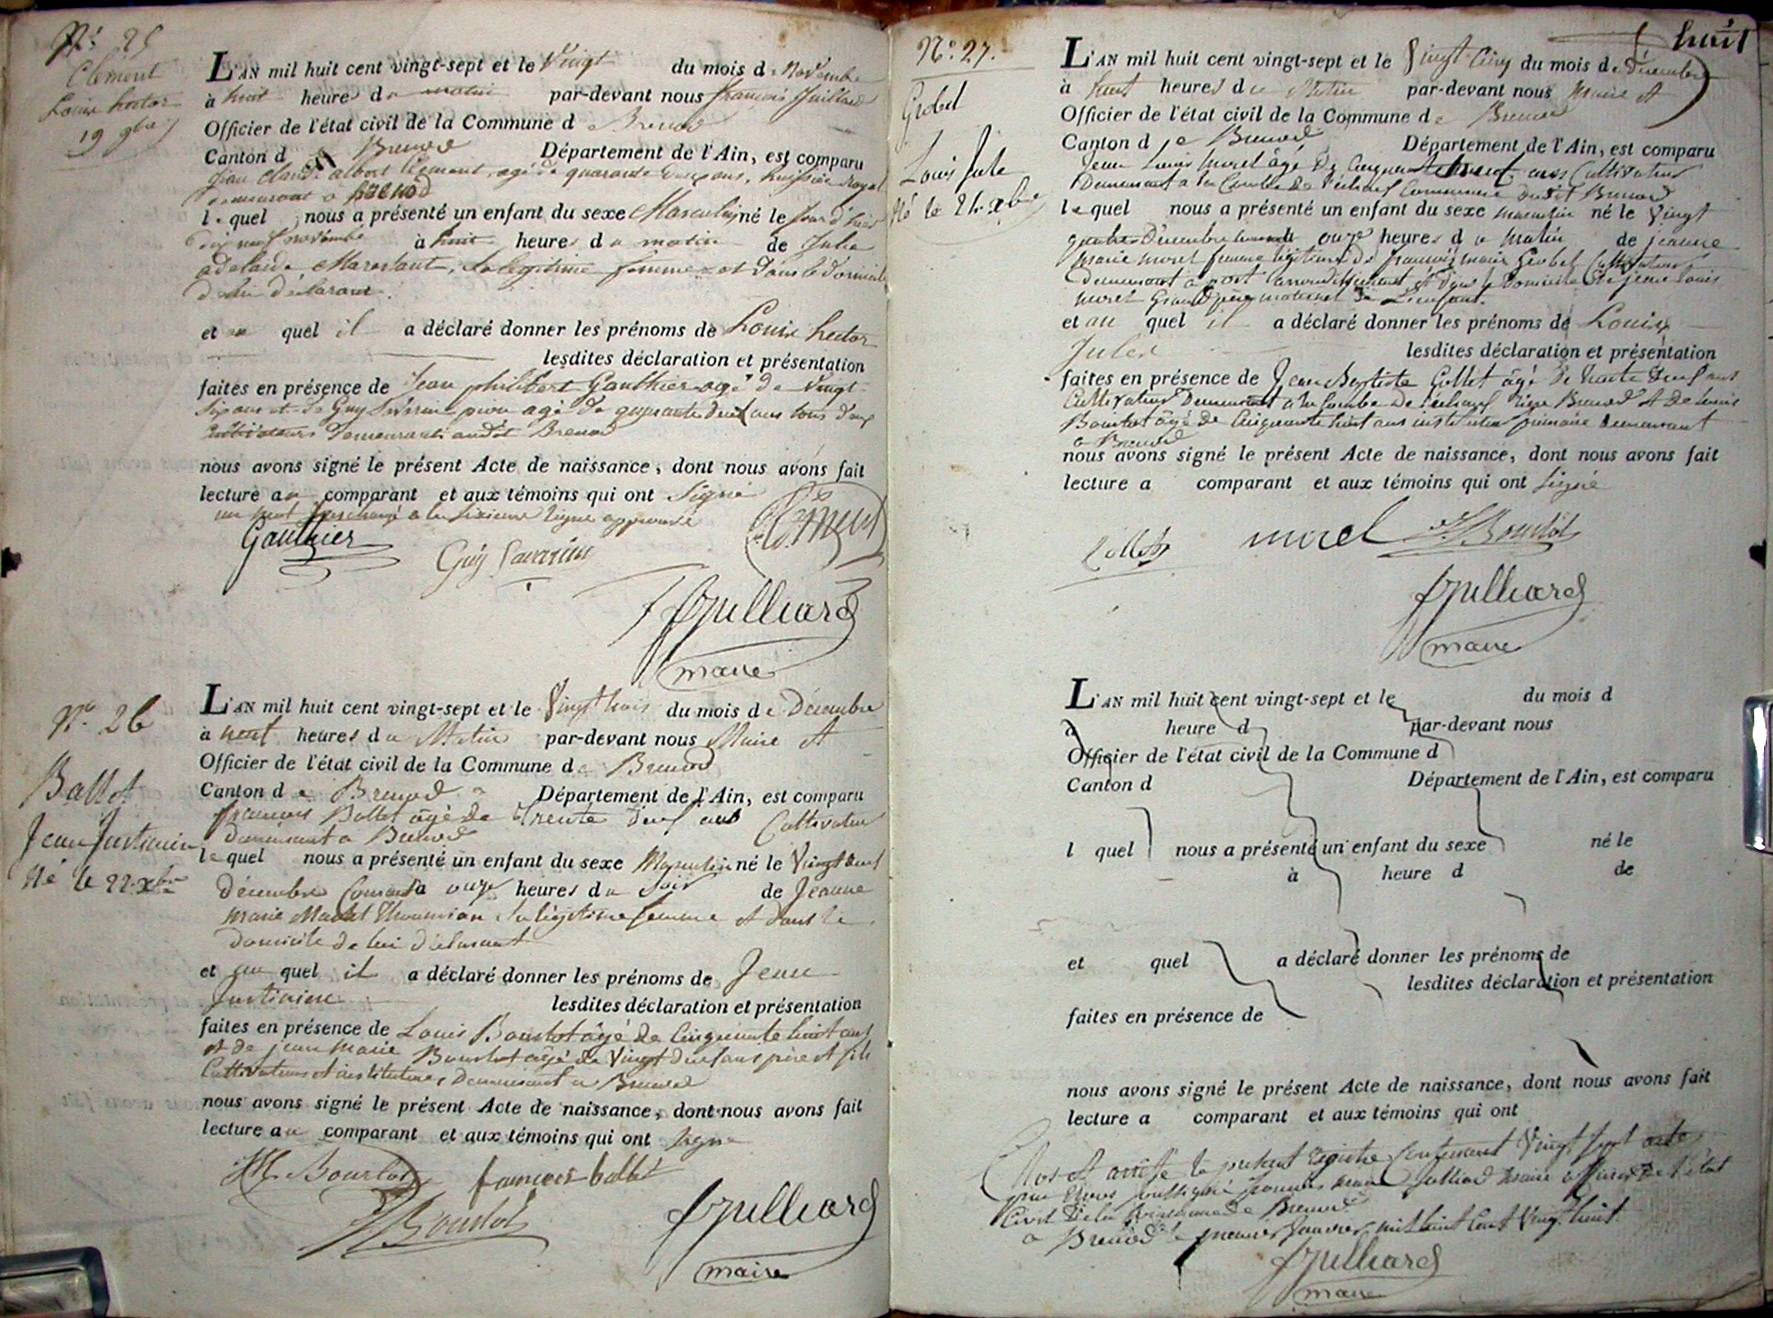 N.o 25
Clément
Louis hector
19 9bre
L'AN mil huit cent vingt-sept et le Vingt du mois de Novembre
à huit heures du matin par-devant nous françois Juillard
Officier de l'état civil de la Commune de Brenod
Canton de Brenod Département de l'Ain, est comparu
Jean Claude albert Clément, agé de quarante ans, huissier royal
demeurant à BRENOD
lequel nous a présenté un enfant du sexe Masculin né le jour d'hier
dix neuf novembre à huit heures du matin de Julie
adelaide, sa legitime femme et dans le domicile
de lui déclarant
et au quel il a déclaré donner les prénoms de Louis hector
lesdites déclaration et présentation
faites en présence de Jean philibert Gauthier agé de Vingt
six ans et de Guy agé de quarante deux ans tous deux
cultivateurs demeurants audit Brenod
nous avons signé le présent Acte de naissance, dont nous avons fait
lecture au comparant et aux témoins qui ont Signé
un mot surchargé a la sixieme ligne approuvé
Gauthier Guy Savarin Clément
Juilliard
maire
N.o 26
Ballot
Jean Justinien
Né le 22 Xbre
L'AN mil huit cent vingt-sept et le Vingt trois du mois de Décembre
à neuf heures du Matin par-devant nous Maire et
Officier de l'état civil de la Commune de Brenod
Canton de Brenod Département de l'Ain, est comparu
francois Ballot âgé de Trente deux ans Cultivateur
demeurant a Brenod
lequel nous a présenté un enfant du sexe Masculin né le Vingt deux
décembre Courant à onze heures du Soir de Jeanne
marie sa légitime femme et dans le
domicile de lui déclarant
et au quel il a déclaré donner les prénoms de Jean
Justinien lesdites déclaration et présentation
faites en présence de Louis Bourlot âgé de Cinquante huit ans
et de jean marie Bourlot âgé de Vingt deux ans père et fils
Cultivateurs et instituteurs demeurant a Brenod
nous avons signé le présent Acte de naissance, dont nous avons fait
lecture au comparant et aux témoins qui ont signé
Bourlot francois ballot
Bourlot
Juilliard
maire
huit
N.o 27.
Grobel
Louis Jule
Né le 24 Xbre
L'AN mil huit cent vingt-sept et le Vingt Cinq du mois de décembre
à huit heures du Matin par-devant nous Maire et
Officier de l'état civil de la Commune de Brenod
Canton de Brenod Département de l'Ain, est comparu
Jean Louis Morel âgé de Cinquante ans Cultivateur
Demeurant a la Combe de Commune dudit Brenod
lequel nous a présenté un enfant du sexe masculin né le Vingt
quatre Décembre Courant à onze heures du Matin de jeanne
marie morel femme légitime de françois marie Grobel Cultivateur
demeurant à port et dans le domicile de jean Louis
morel Grand père maternel de L'enfant.
et au quel il a déclaré donner les prénoms de Louis
Jules lesdites déclaration et présentation
faites en présence de Jean Baptiste Collet âgé de trente deux ans
Cultivateur Demeurant a la Combe de rière Brenod et de Louis
Bourlot âgé de Cinquante huit ans instituteur primaire demeurant
a Brenod
nous avons signé le présent Acte de naissance, dont nous avons fait
lecture a comparant et aux témoins qui ont signé
Collet morel Bourlot
Juilliard
maire
L'AN mil huit cent vingt-sept et le du mois d
à heure d par-devant nous
Officier de l'état civil de la Commune d
Canton d Département de l'Ain, est comparu
l quel nous a présenté un enfant du sexe né le
à heure d de
et quel a déclaré donner les prénoms de
lesdites déclaration et présentation
faites en présence de
nous avons signé le présent Acte de naissance, dont nous avons fait
lecture a comparant et aux témoins qui ont
Clos et arrêté le présent registre Contenant Vingt sept actes
par Nous soussigné françois Juilliard maire officier de l'état
Civil de la Commune de Brenod
a Brenod le premier Janvier mil huit Cent Vingt huit.
Juilliard
maire